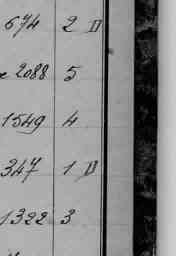 674 2 D
e 2088 5
1549 4
347 1 D
1322 3